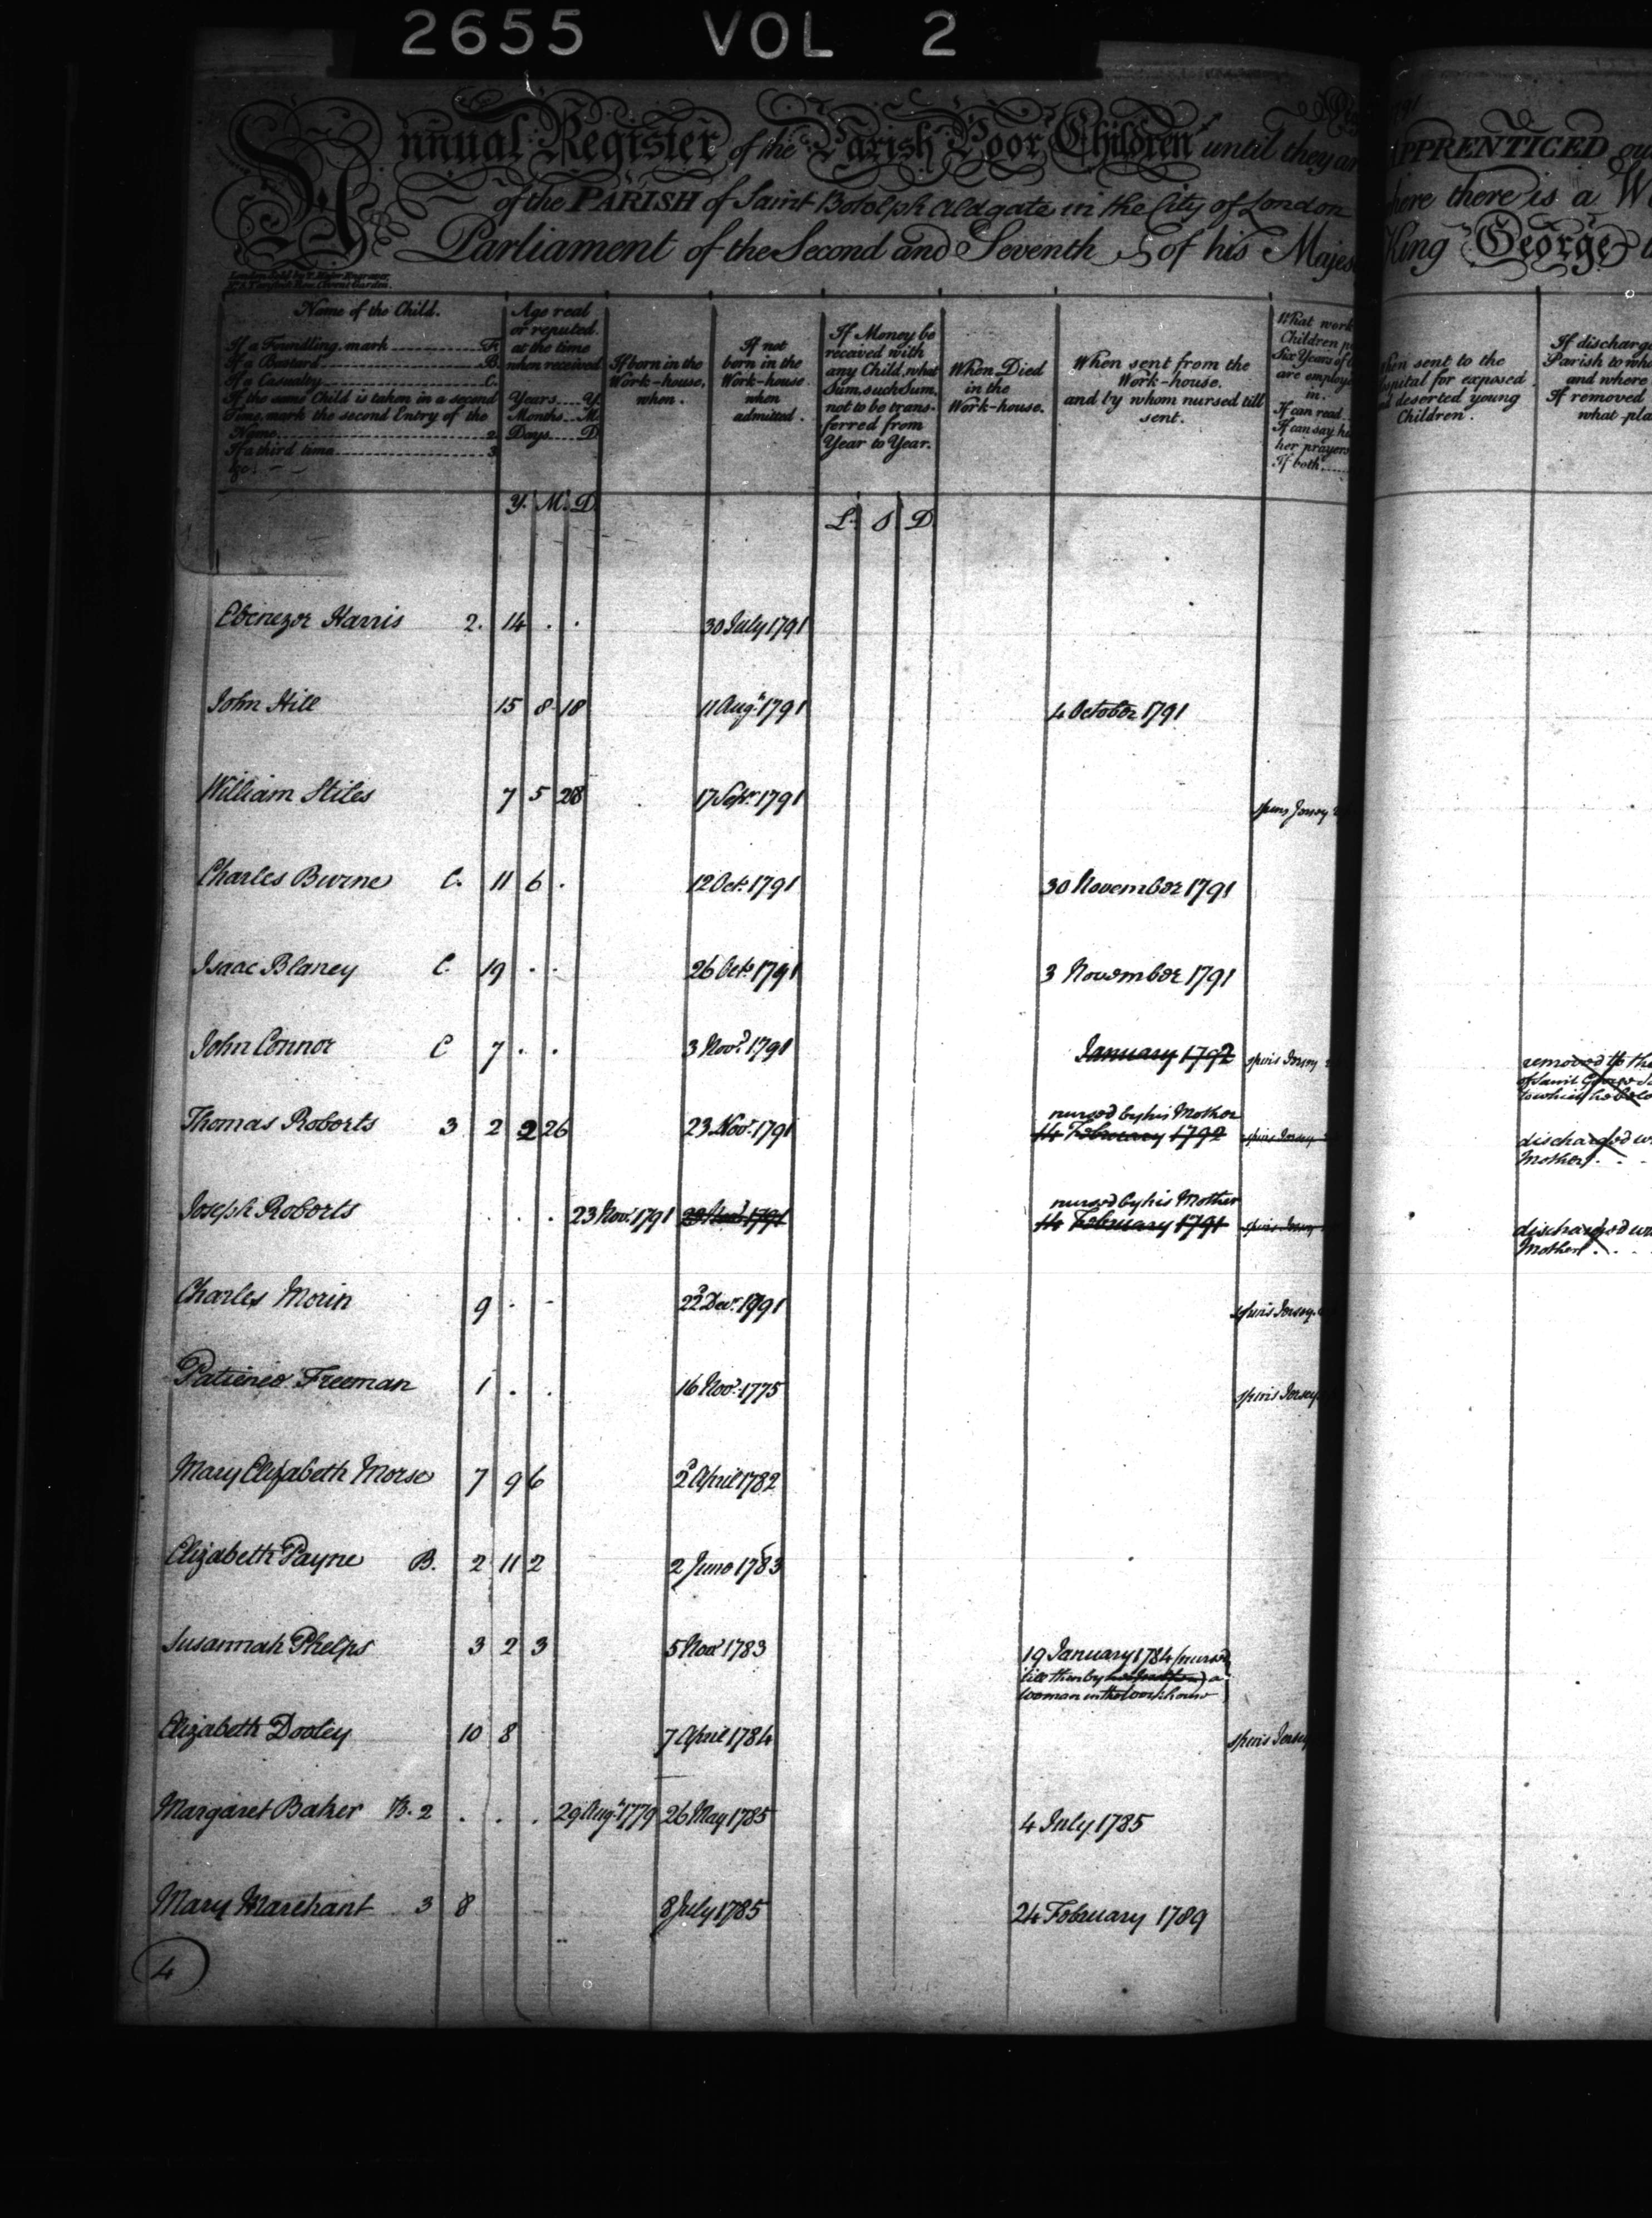 2655 VOL 2
Annual Register of the Parish Poor Children until they ar
of the PARISH of Saint Botolph Aldgate in the City of London
Parliament of the Second and Seventh of his Majes
APPRENTICED
here there is a
King George
Name of the Child.
If a Foundling, mark F.
If a Bastard B.
If a Casualty C.
If the same Child is taken in a second
Time, mark the second Entry of the
Name 2.
If a third time 3.
&c.
Age real
or reputed.
at the time
when received
Years Y.
Months M.
Days D.
If born in the
Work-house,
when.
If not
born in the
Work-house
when
admitted.
If Money be
received with
any Child, what
Sum, such Sum,
not to be trans-
ferred from
Year to Year.
When Died
in the
Work-house.
When sent from the
Work-house.
and by whom nursed till
sent.
What work
Children
Six Years of
are employ
in.
If can read
If can say his
her prayers
If both
hen sent to the
spital for exposed
deserted young
Children.
If discharg
Parish to wh
and where
If removed
what pla
Y. M. D. L. S. D.
Ebenezer Harris 2. 14 . . 30 July 1791
John Hill 15 8 18 11 Augt 1791 4 October 1791
William Stiles 7 5 28 17 Sepr 1791 Jersey
Charles Burne C. 11 6 . 12 Oct. 1791 30 November 1791
Isaac Blaney C. 19 . . 26 Oct. 1791 3 November 1791
John Connor C 7 . . 3 Novr 1791 January 1792 spins Jersey removed to the
to which he belo
Thomas Roberts 3 2 2 26 23 Novr 1791 nursed by his Mother
14 February 1792 spins Jersey discharged w
Mother . . -
Joseph Roberts . . . 23 Novr 1791 23 Novr 1791 nursed by his Mother
14 February 1791 spins Jersey discharged w
Mother . . .
Charles Morin 9 . - 22d Decr 1791 spins Jersey
Patience Freeman 1 . . 16 Novr 1775 spins Jersey
Mary Elizabeth Morse 7 9 6 2d April 1782
Elizabeth Payne B. 2 11 2 2 June 1783
Susannah Phelps 3 2 3 5 Novr 1783 19 January 1784 (nursed
till then by a
woman in the workhouse)
Elizabeth Dooley 10 8 7 April 1784 spins Jersey
Margaret Baker B. 2 . . . 29 Augt 1779 26 May 1785 4 July 1785
Mary Marchant 3 8 8 July 1785 24 February 1789
4